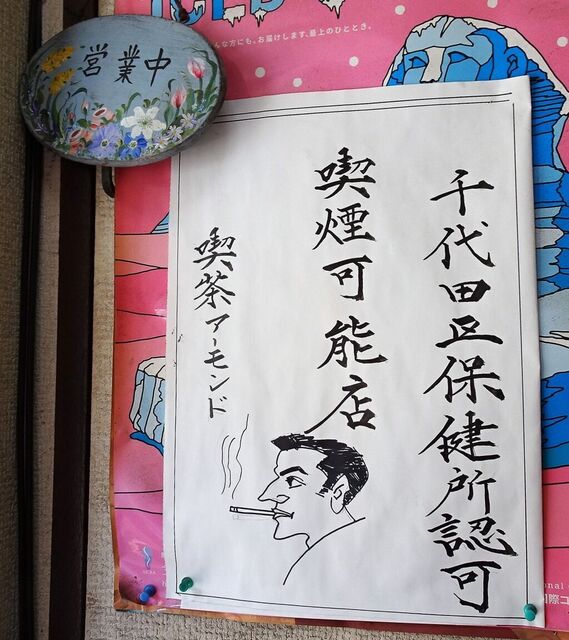 営業中
んな方にも、お届けします、最上のひととき。
千代田区保健所認可
喫煙可能店
喫茶アーモンド